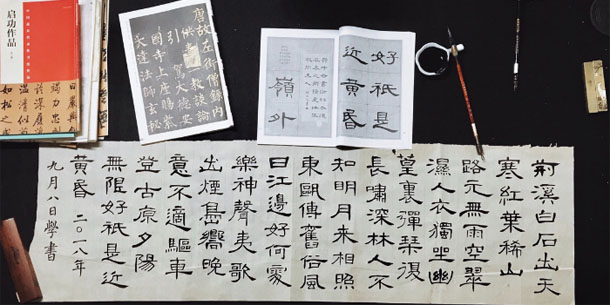 启功作品
如松之
唐故左街僧錄內
供奉三教談論
引駕大德安
國寺上座賜紫
大達法師玄秘
好祇是
近黃昏
嶺外
荊溪白石出天
寒紅葉稀山
路元無雨空翠
濕人衣獨坐幽
篁裏彈琴復
長嘯深林人不
知明月來相照
東甌傳舊俗風
日江邊好何處
樂神聲夷歌
出煙島嚮晚
意不適驅車
登古原夕陽
無限好祇是近
黃昏 二〇一八年
九月八日學書